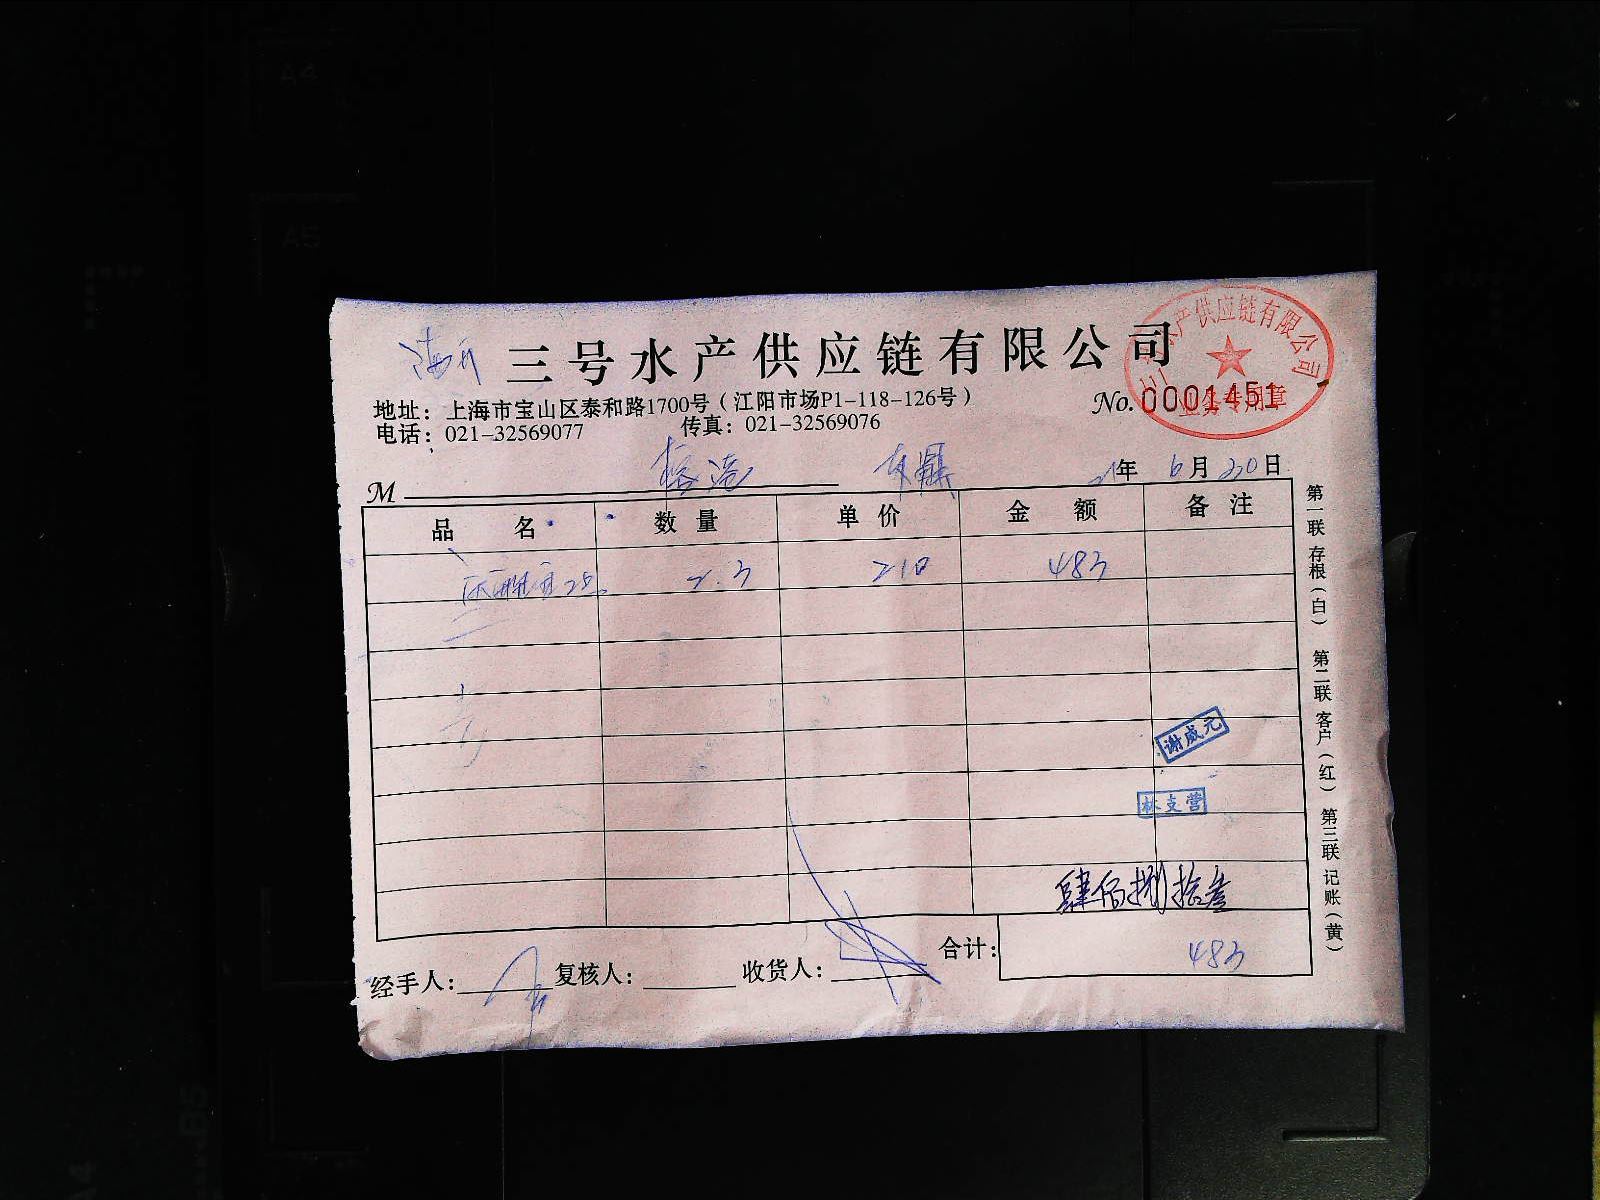 三号水产供应链有限公司
水产供应链有限公司
地址：上海市宝山区泰和路1700号（江阳市场P1-118-126号）
No.0001451
专用章
电话：021-32569077 传真：021-32569076
M 年 6月20日
品名 数量 单价 金额 备注
2.3 210 483
谢咸元
林支营
肆佰捌拾叁
合计： 483
经手人： 复核人： 收货人：
第一联 存根（白） 第二联 客户（红） 第三联 记账（黄）
A4
A5